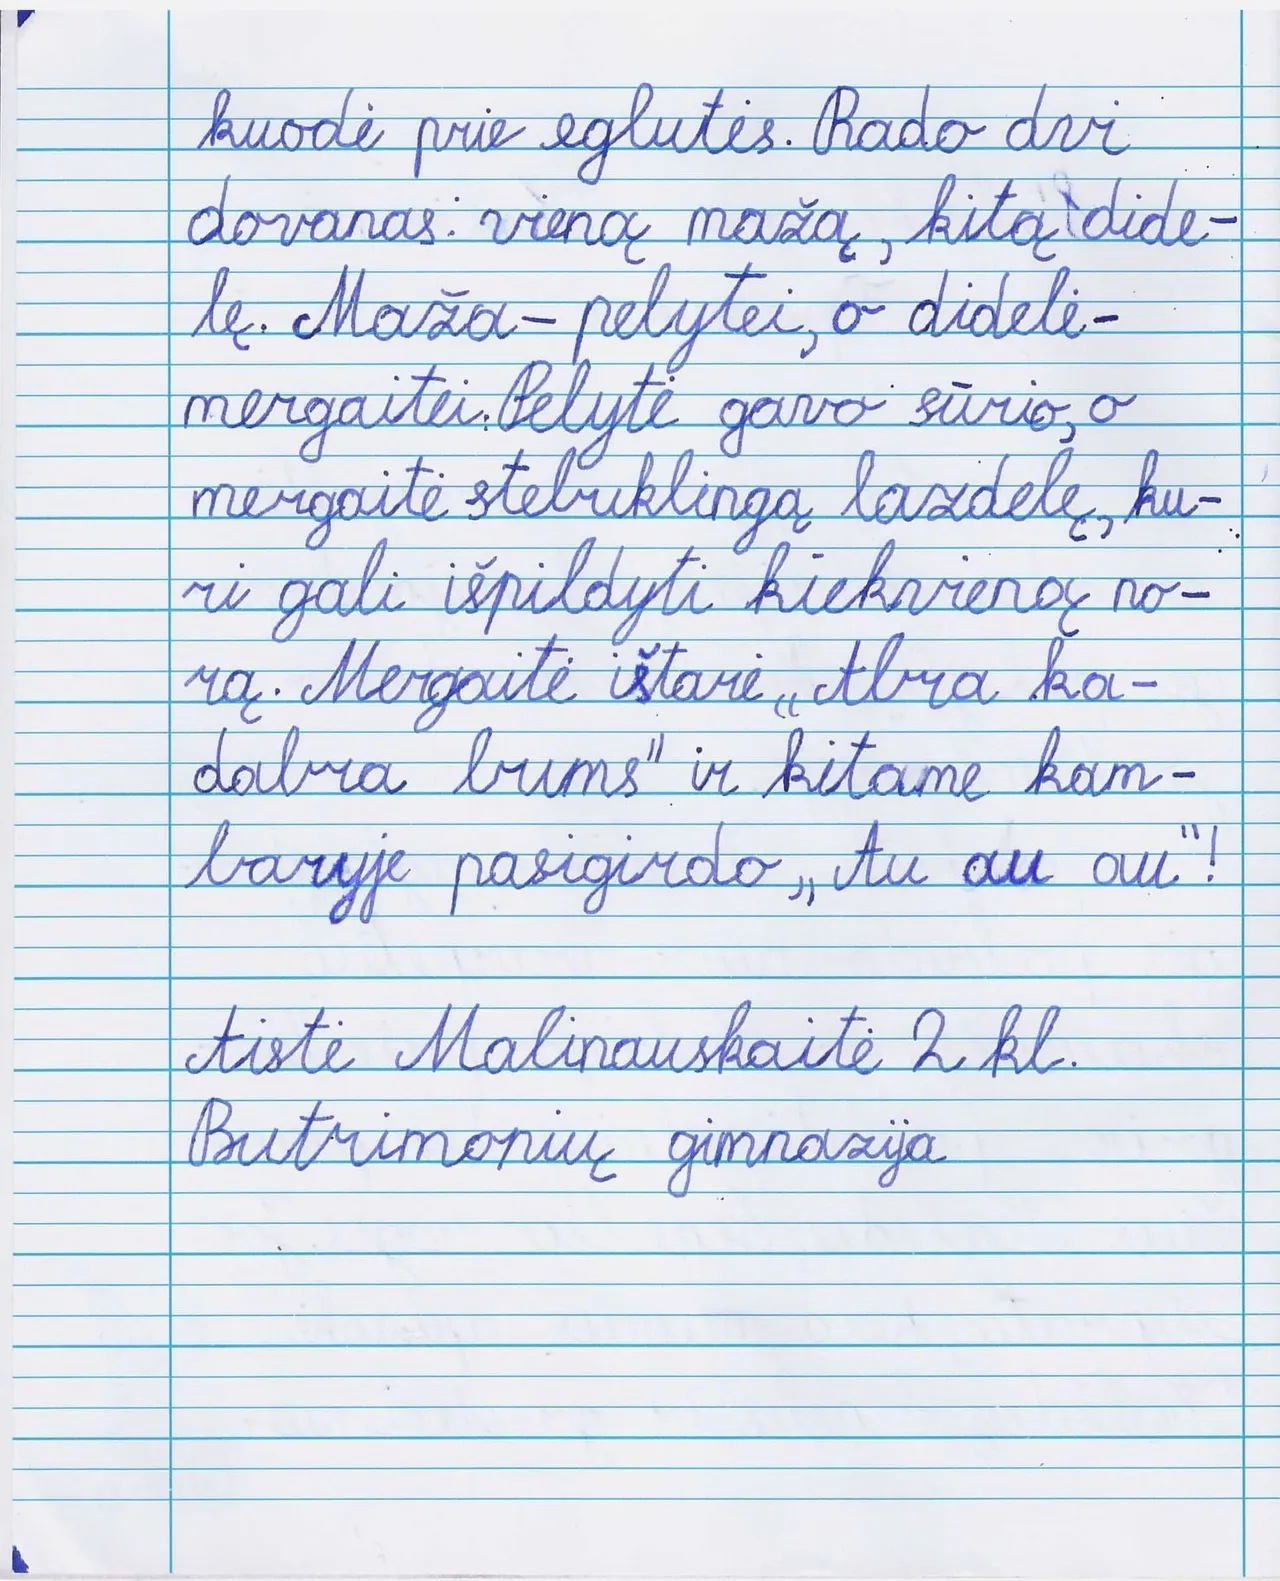 kuodė prie eglutės. Rado dvi
dovanas: vieną mažą, kitą dide-
lę. Maža - pelytei, o didelė -
mergaitei. Pelytė gavo sūrio, o
mergaitė stebuklingą lazdelę, ku-
ri gali išpildyti kiekvieną no-
rą. Mergaitė ištarė „Abra ka-
dabra bums" ir kitame kam-
baryje pasigirdo „Au au au"!
Aistė Malinauskaitė 2 kl.
Butrimonių gimnazija